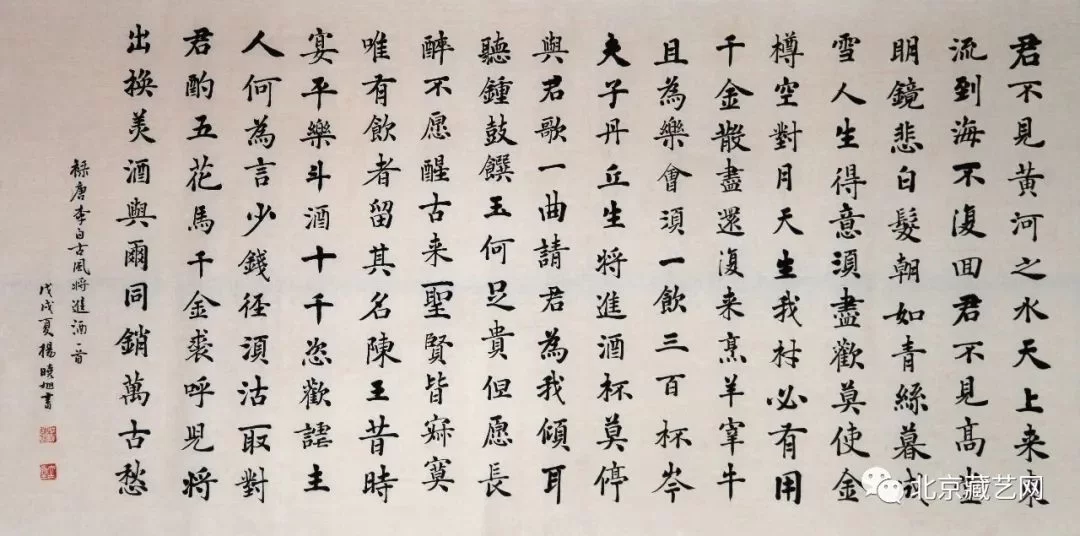 君不見黄河之水天上来東
流到海不復回君不見高堂
明鏡悲白髮朝如青絲暮成
雪人生得意須盡歡莫使金
樽空對月天生我材必有用
千金散盡還復来烹羊宰牛
且為樂會須一飲三百杯岑
夫子丹丘生将進酒杯莫停
與君歌一曲請君為我傾耳
聽鍾鼓饌玉何足貴但愿長
醉不愿醒古来聖賢皆寂寞
唯有飲者留其名陳王昔時
宴平樂斗酒十千恣歡謔主
人何為言少錢徑須沽取對
君酌五花馬千金裘呼兒将
出換美酒與爾同銷萬古愁
録唐李白古風将進酒一首
戊戌夏楊曉旭書
北京藏艺网